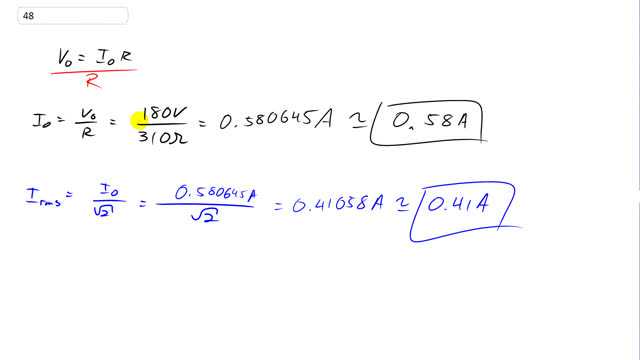 48
V₀ = I₀ R
R
I₀ = V₀/R = 180V/310Ω = 0.580645A ≃ 0.58A
I rms = I₀/√2 = 0.580645A/√2 = 0.41058A ≃ 0.41A